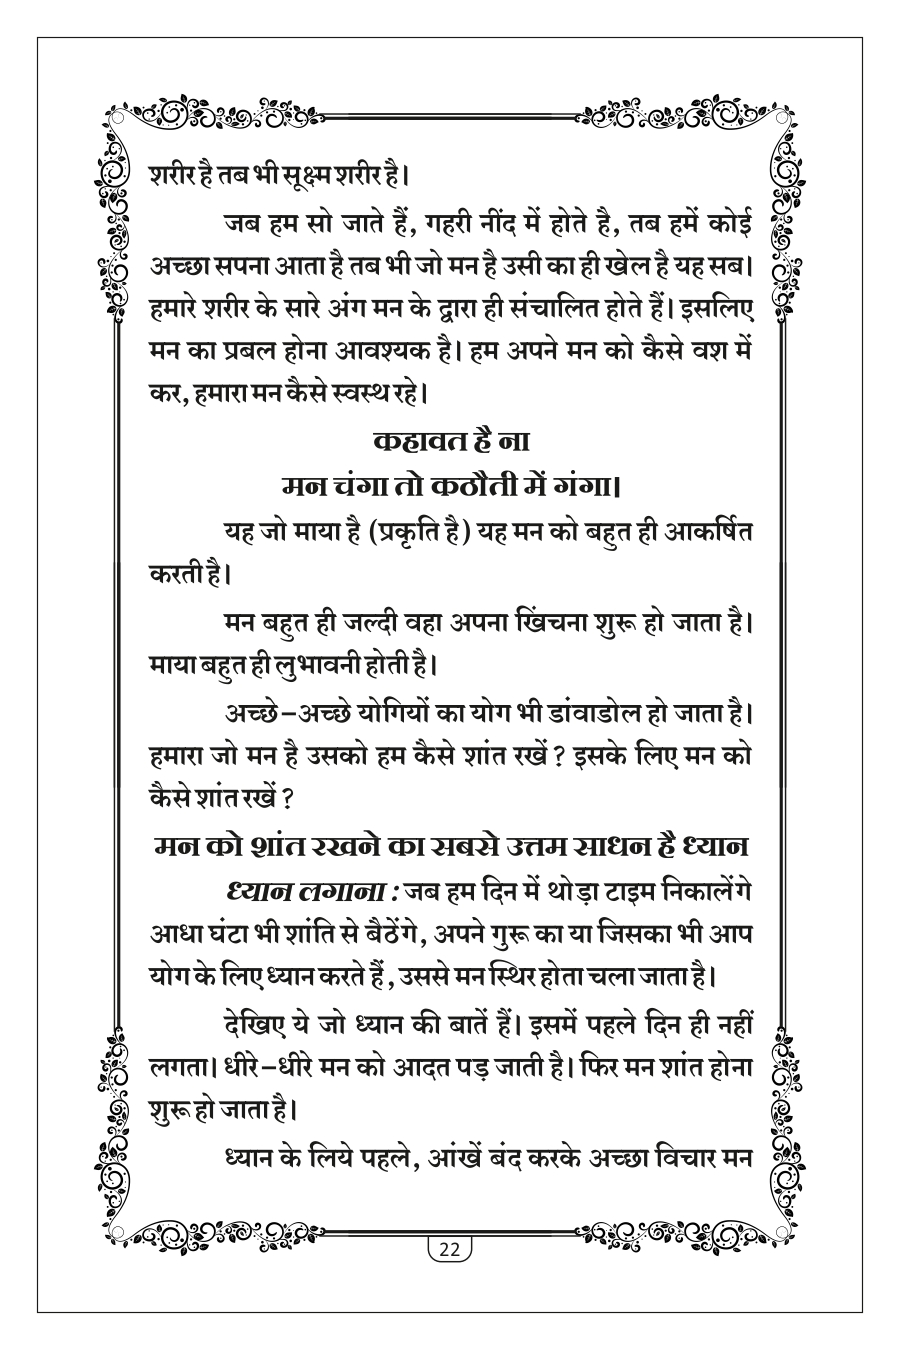 शरीर है तब भी सूक्ष्म शरीर है।
जब हम सो जाते हैं, गहरी नींद में होते है, तब हमें कोई
अच्छा सपना आता है तब भी जो मन है उसी का ही खेल है यह सब।
हमारे शरीर के सारे अंग मन के द्वारा ही संचालित होते हैं। इसलिए
मन का प्रबल होना आवश्यक है। हम अपने मन को कैसे वश में
कर, हमारा मन कैसे स्वस्थ रहे।
कहावत है ना
मन चंगा तो कठौती में गंगा।
यह जो माया है (प्रकृति है) यह मन को बहुत ही आकर्षित
करती है।
मन बहुत ही जल्दी वहा अपना खिंचना शुरू हो जाता है।
माया बहुत ही लुभावनी होती है।
अच्छे–अच्छे योगियों का योग भी डांवाडोल हो जाता है।
हमारा जो मन है उसको हम कैसे शांत रखें ? इसके लिए मन को
कैसे शांत रखें ?
मन को शांत रखने का सबसे उत्तम साधन है ध्यान
ध्यान लगाना : जब हम दिन में थोड़ा टाइम निकालेंगे
आधा घंटा भी शांति से बैठेंगे, अपने गुरू का या जिसका भी आप
योग के लिए ध्यान करते हैं, उससे मन स्थिर होता चला जाता है।
देखिए ये जो ध्यान की बातें हैं। इसमें पहले दिन ही नहीं
लगता। धीरे–धीरे मन को आदत पड़ जाती है। फिर मन शांत होना
शुरू हो जाता है।
ध्यान के लिये पहले, आंखें बंद करके अच्छा विचार मन
22